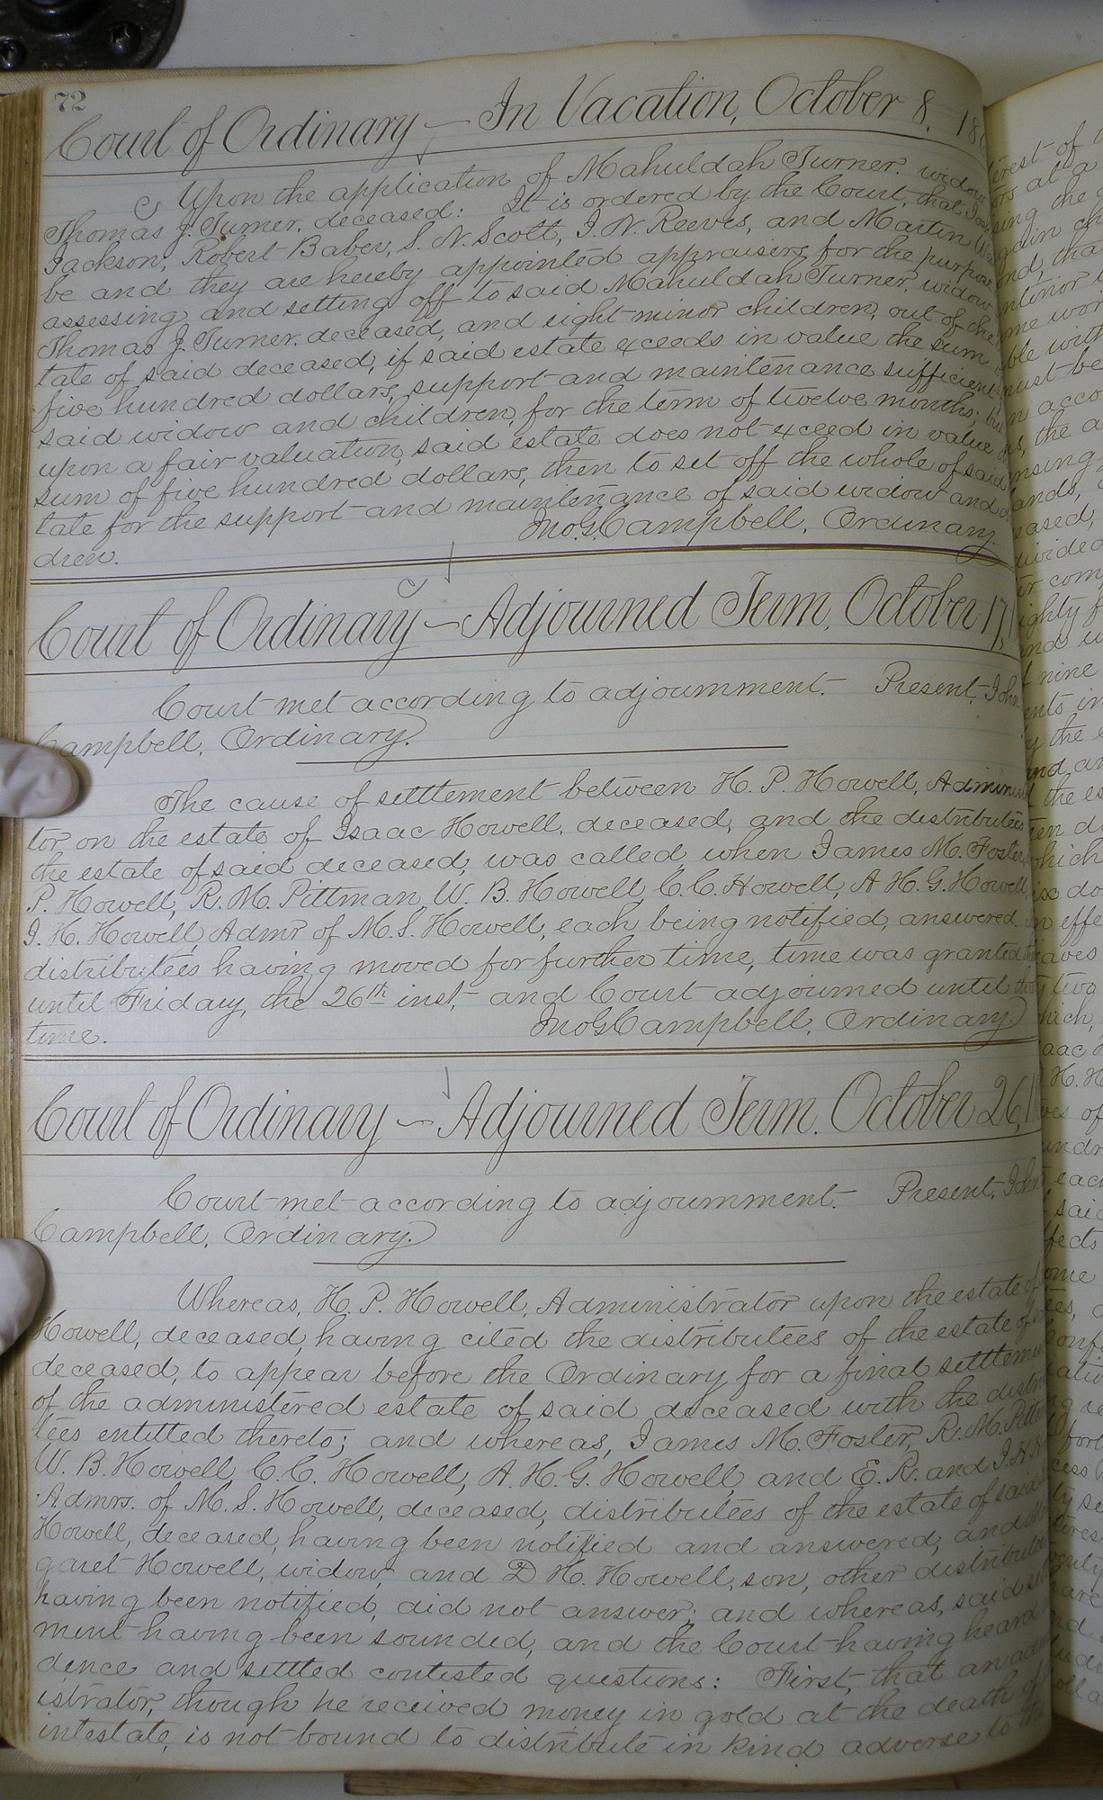 72
Court of Ordinary — In Vacation, October 8, 18
Upon the application of Mahuldah Turner, widow
Thomas J. Turner, deceased: It is ordered by the Court, that
Jackson, Robert Baber, S. N. Scott, J. W. Reeves, and Martin
be and they are hereby appointed appraisors for the purpose
assessing and setting off to said Mahuldah Turner, widow
Thomas J. Turner, deceased, and eight minor children, out of the
tate of said deceased, if said estate exceeds in value the sum
five hundred dollars, support and maintenance sufficient
said widow and children, for the term of twelve months; but
upon a fair valuation, said estate does not exceed in value
sum of five hundred dollars, then to set off the whole of said
tate for the support and maintenance of said widow and
dren. Jno. G. Campbell, Ordinary
Court of Ordinary — Adjourned Term, October 17,
Court met according to adjournment. Present, John
Campbell, Ordinary.
The cause of settlement between H. P. Howell, Adminis
tor on the estate of Isaac Howell, deceased, and the distributees
the estate of said deceased, was called when James M. Foster
P. Howell, R. M. Pittman, W. B. Howell, C. C. Howell, A. H. G. Howell
J. H. Howell, Admr of M. S. Howell, each being notified, answered.
distributees having moved for further time, time was granted
until Friday, the 26th inst, and Court adjourned until that
time. Jno. G. Campbell, Ordinary
Court of Ordinary — Adjourned Term, October 26, 1
Court met according to adjournment. Present, John
Campbell, Ordinary.
Whereas, H. P. Howell, Administrator upon the estate of
Howell, deceased, having cited the distributees of the estate of
deceased, to appear before the Ordinary for a final settlement
of the administered estate of said deceased with the distri
tees entitled thereto; and whereas, James M. Foster, R. M. Pitt
W. B. Howell, C. C. Howell, A. H. G. Howell, and E. R. and J. H.
Admrs. of M. S. Howell, deceased, distributees of the estate of said
Howell, deceased, having been notified and answered, and
garet Howell, widow, and D H. Howell, son, other distributees
having been notified, did not answer; and whereas, said
ment having been sounded, and the Court having heard
dence and settled contested questions: First, that an
istrator, though he received money in gold at the death of
intestate, is not bound to distribute in kind adverse to